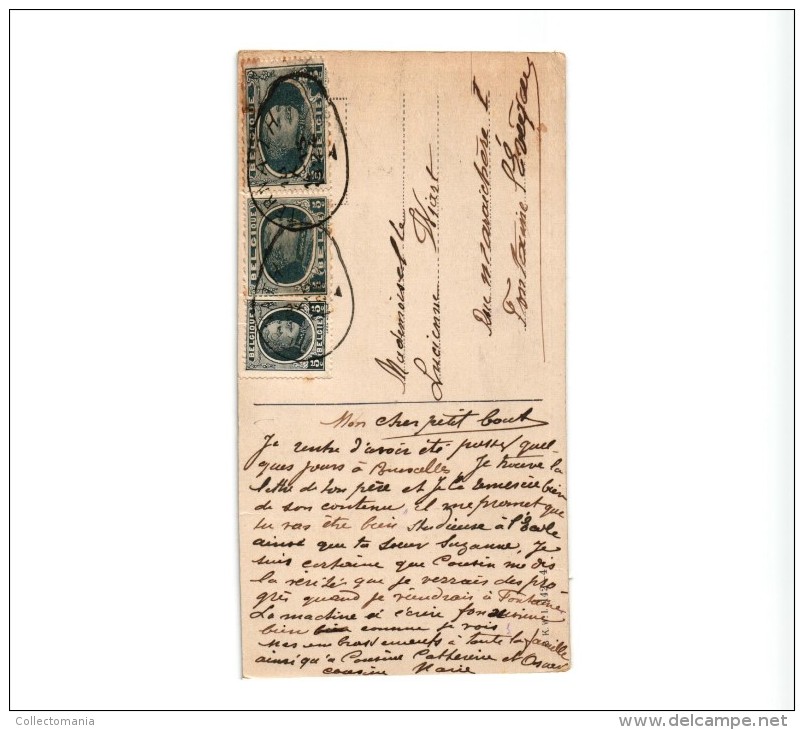 BELGIQUE BELGIE
BELGIQUE
BELGIQUE BELGIË
Mademoiselle
Lucienne Wiart
Rue maraichère 1
Fontaine l'Evêque
Mon cher petit bout
Je rentre d'avoir été passer quel-
ques jours à Bruxelles Je trouve la
lettre de ton père et Je le remercie bien
de son contenu. Il me promet que
tu vas être bien studieuse à l'École
ainsi que ta soeur Suzanne, Je
suis certaine que Cousin me dis
la vérité que je verrais des pro
grès quand je viendrais à Fontaine
La machine à écrire fonctionne
bien comme je vois
Mes embrassements à toute la famille
ainsi qu'à Cousine Catherine et Oscar
cousine Marie
Collectomania
delcampe.net